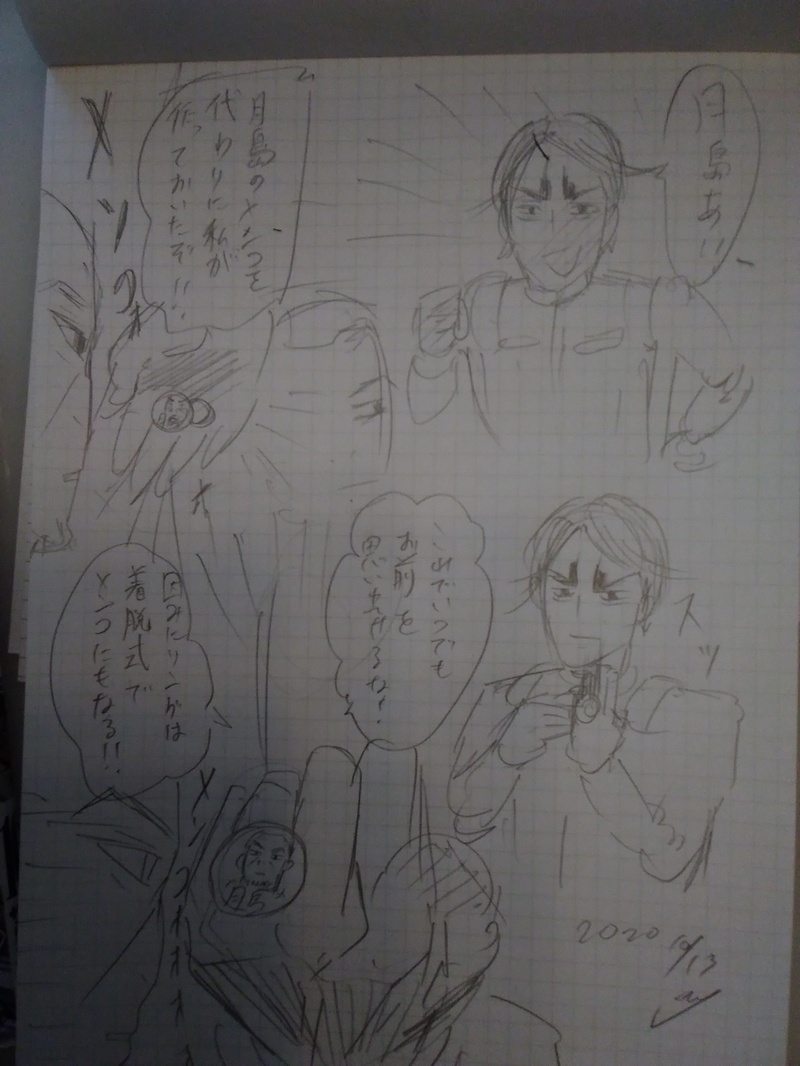 月島あ!!
月島のメンコを
代わりに私が
作っておいたぞ!!
メンコォ
オ
これでいつでも
お前を
思い出せるな!
スッ
因みにリングは
着脱式で
メンコにもなる!!
メンコォォォォ
月島
2020
10/13